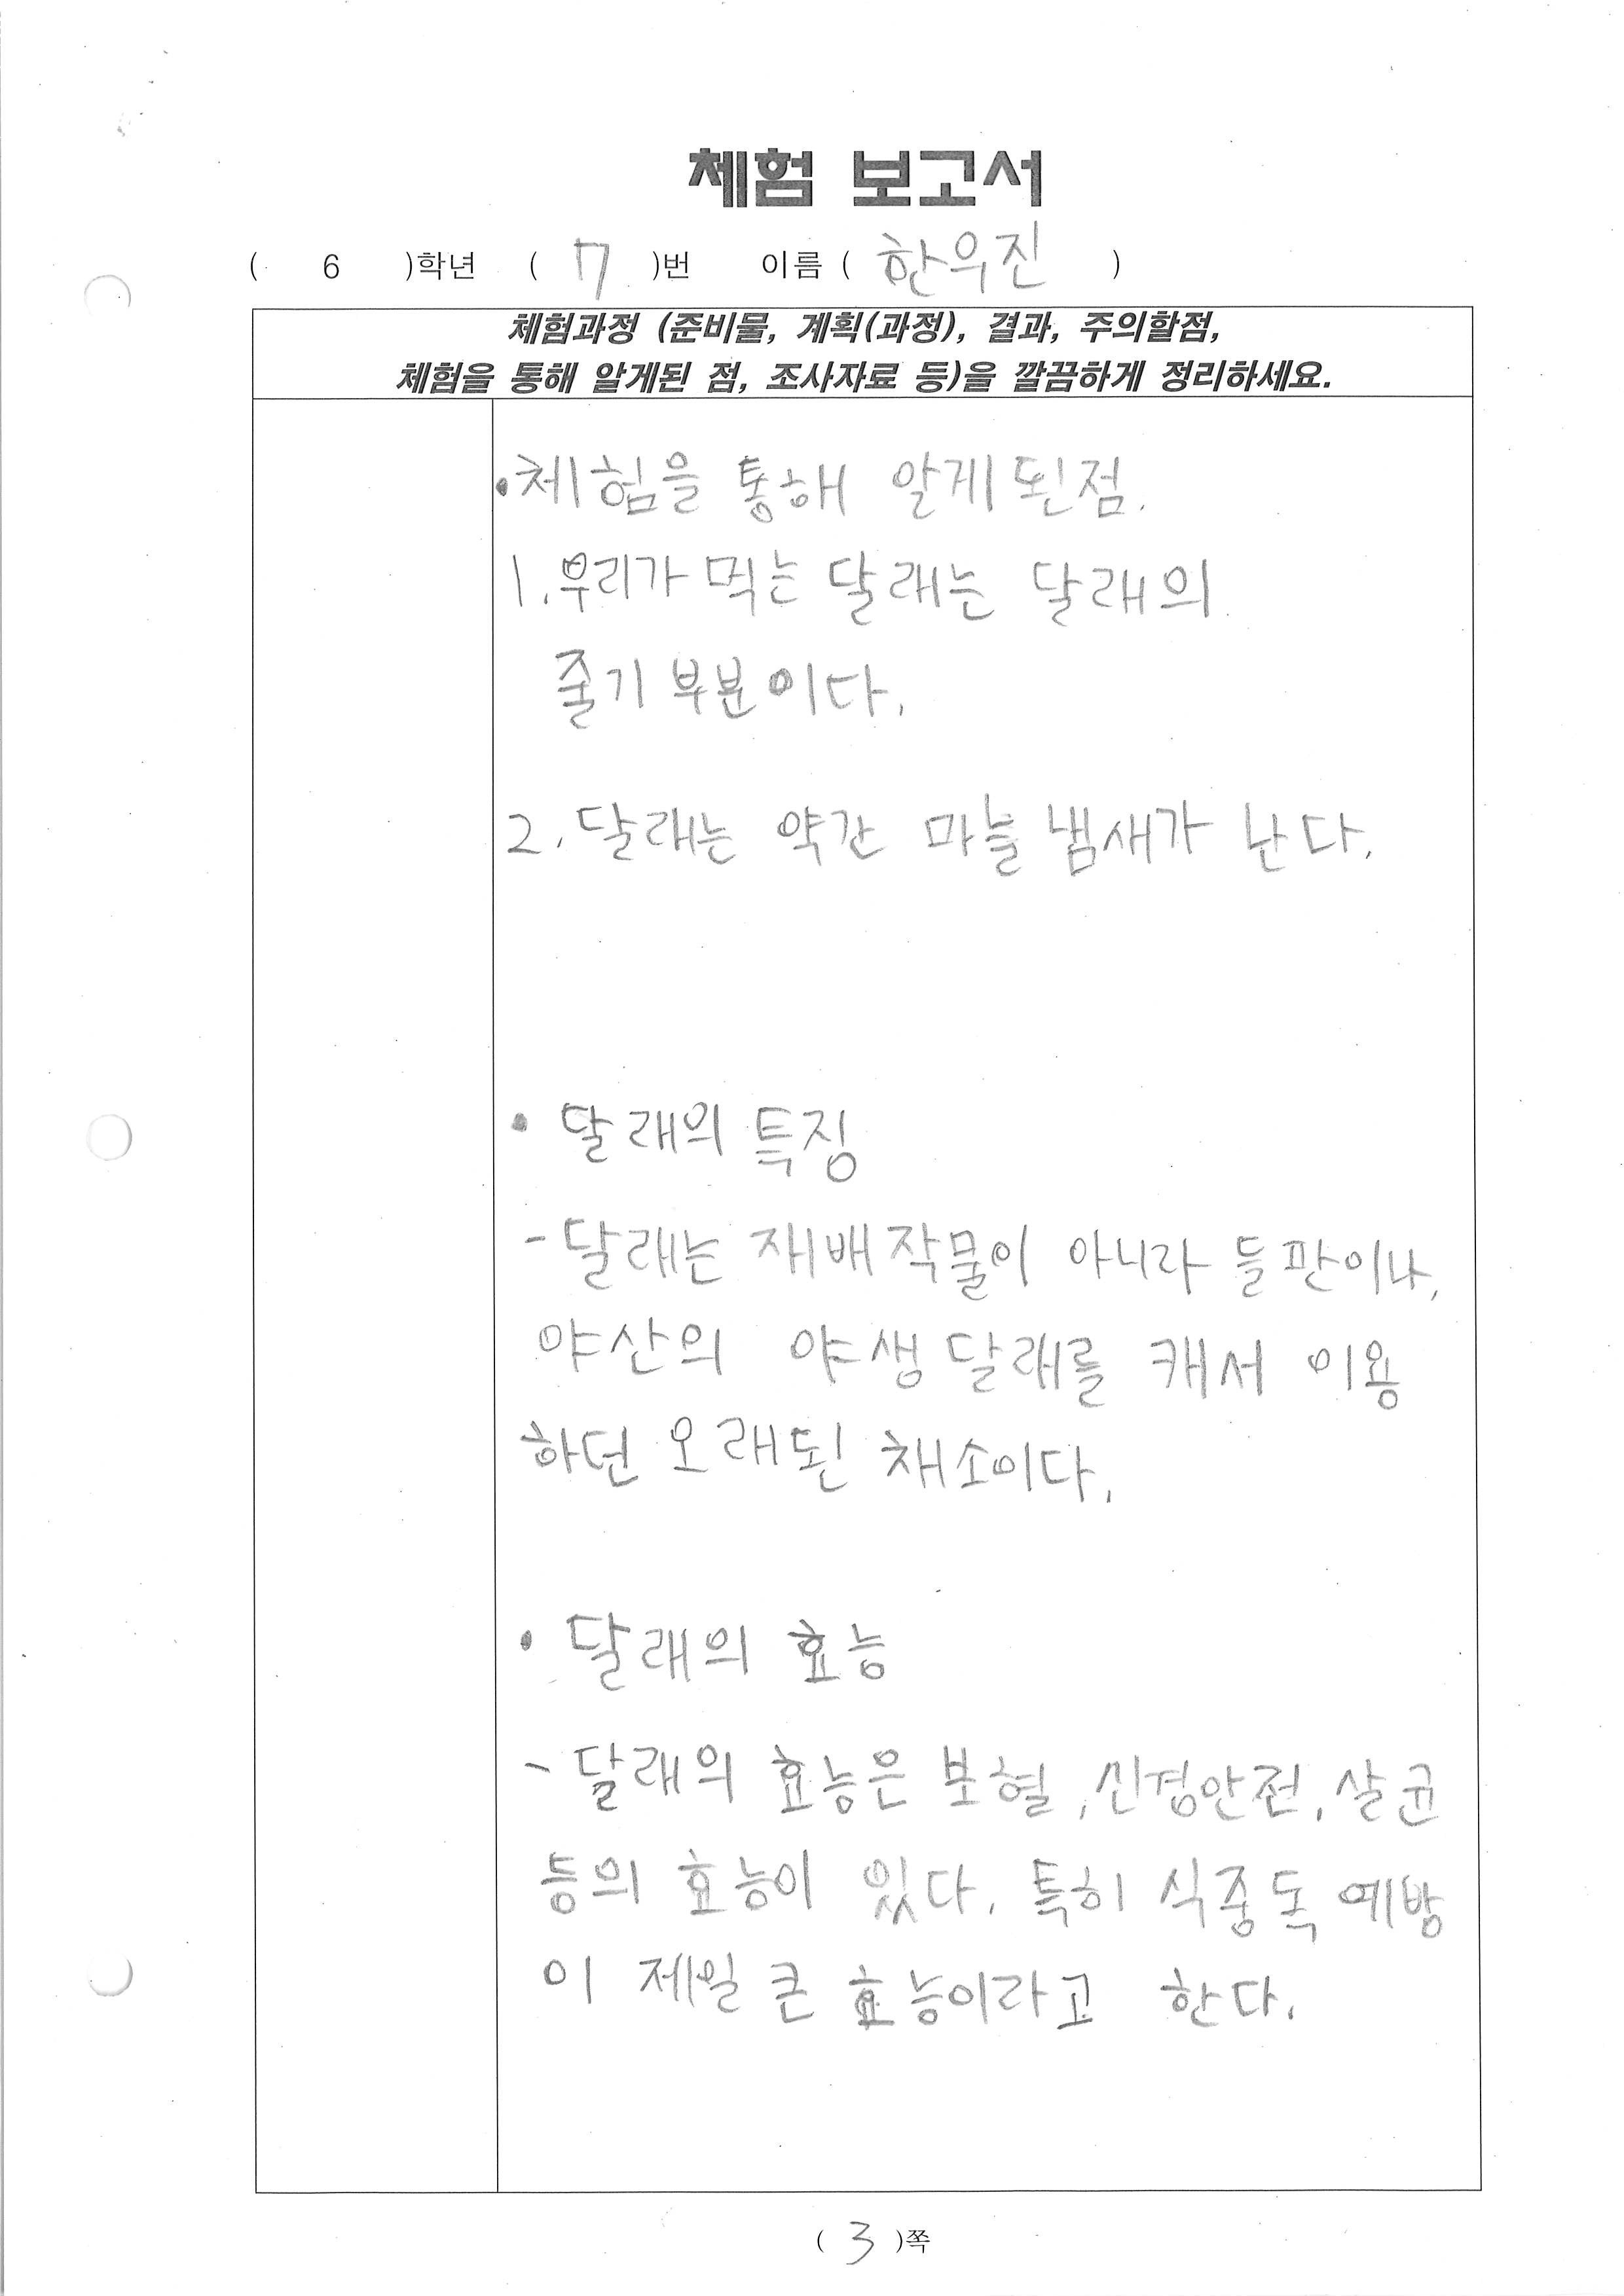 체험 보고서
( 6 )학년 ( 7 )번 이름 ( 한우진 )
체험과정 (준비물, 계획(과정), 결과, 주의할점,
체험을 통해 알게된 점, 조사자료 등)을 깔끔하게 정리하세요.
•체험을 통해 알게 된점.
1. 우리가 먹는 달래는 달래의
줄기 부분이다.
2. 달래는 약간 마늘 냄새가 난다.
• 달래의 특징
- 달래는 재배작물이 아니라 들판이나,
야산의 야생달래를 캐서 이용
하던 오래된 채소이다.
• 달래의 효능
- 달래의 효능은 보혈, 신경안전, 살균
등의 효능이 있다. 특히 식중독 예방
이 제일 큰 효능이라고 한다.
( 3 )쪽